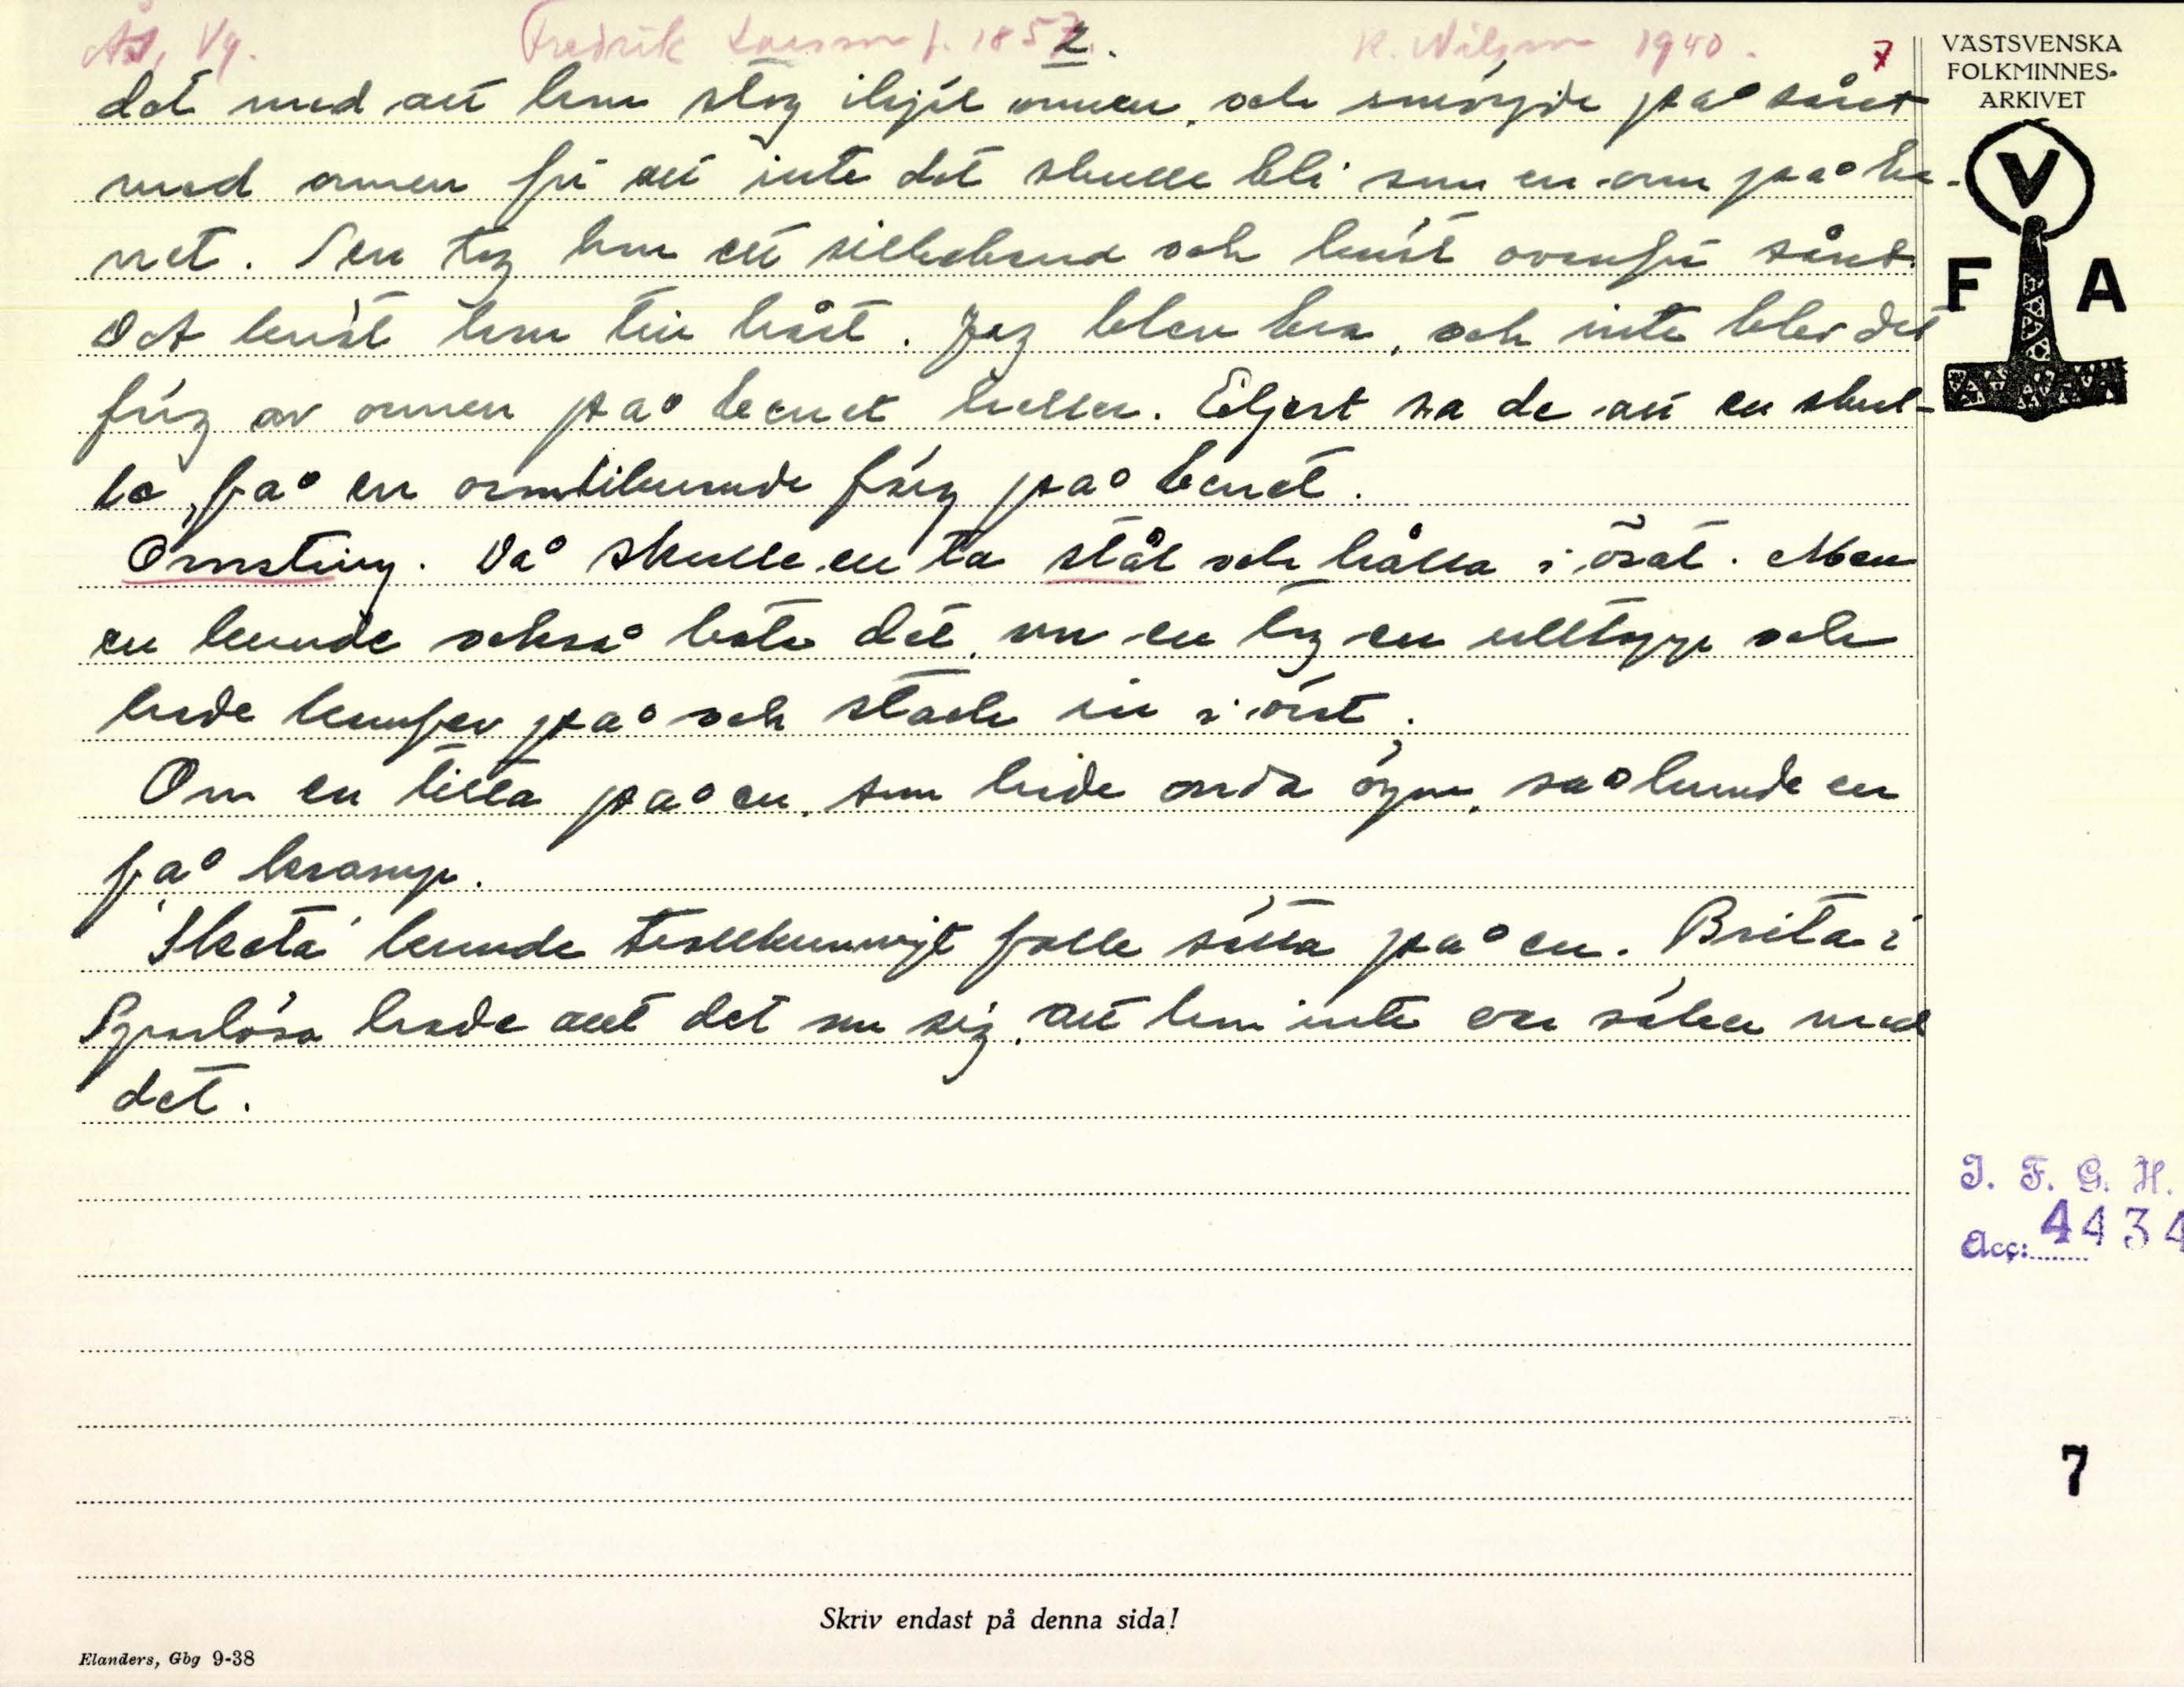 Ås, Vg. Fredrik Larsson f. 1857. 2. K. Nilsson 1940. 7
det med att hon slog ihjäl ormen, och smörjde på såret
med ormen för att inte det skulle bli som en orm på be-
net. Sen tog hon ett silkeband och knöt ovanför såret.
Det knöt hon till hårt. Jag blev bra, och inte blev det
färg av ormen på benet heller. Eljest sa de att en skul-
le få en ormliknande färg på benet.
Ormsting. Då skulle en ta stål och hålla i örat. Men
en kunde också bota det, om en tog en ulltapp och
hade kamfer på och stack in i örat.
Om en titta på en, som hade onda ögon, så kunde en
få kramp.
'Skota' kunde trollkunnigt folk sätta på en. Brita i
Sparlösa hade allt det om sig, att hon inte var säker med
det.
VÄSTSVENSKA
FOLKMINNES-
ARKIVET
V
F A
I. F. G. H.
Acc: 4434
7
Skriv endast på denna sida!
Elanders, Gbg 9-38